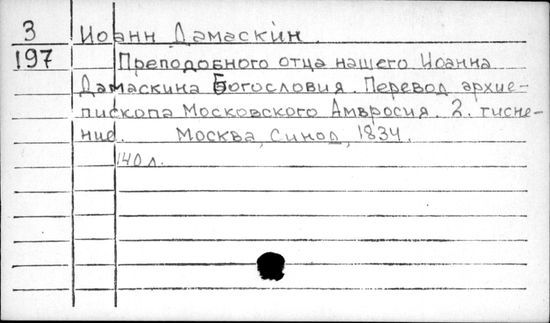 3 Иоанн Дамаскин.
197 Преподобного отца нашего Иоанна
Дамаскина Богословия. Перевод архие-
пископа Московского Амвросия. 2. тисне-
ние. Москва, Синод, 1834.
140 л.